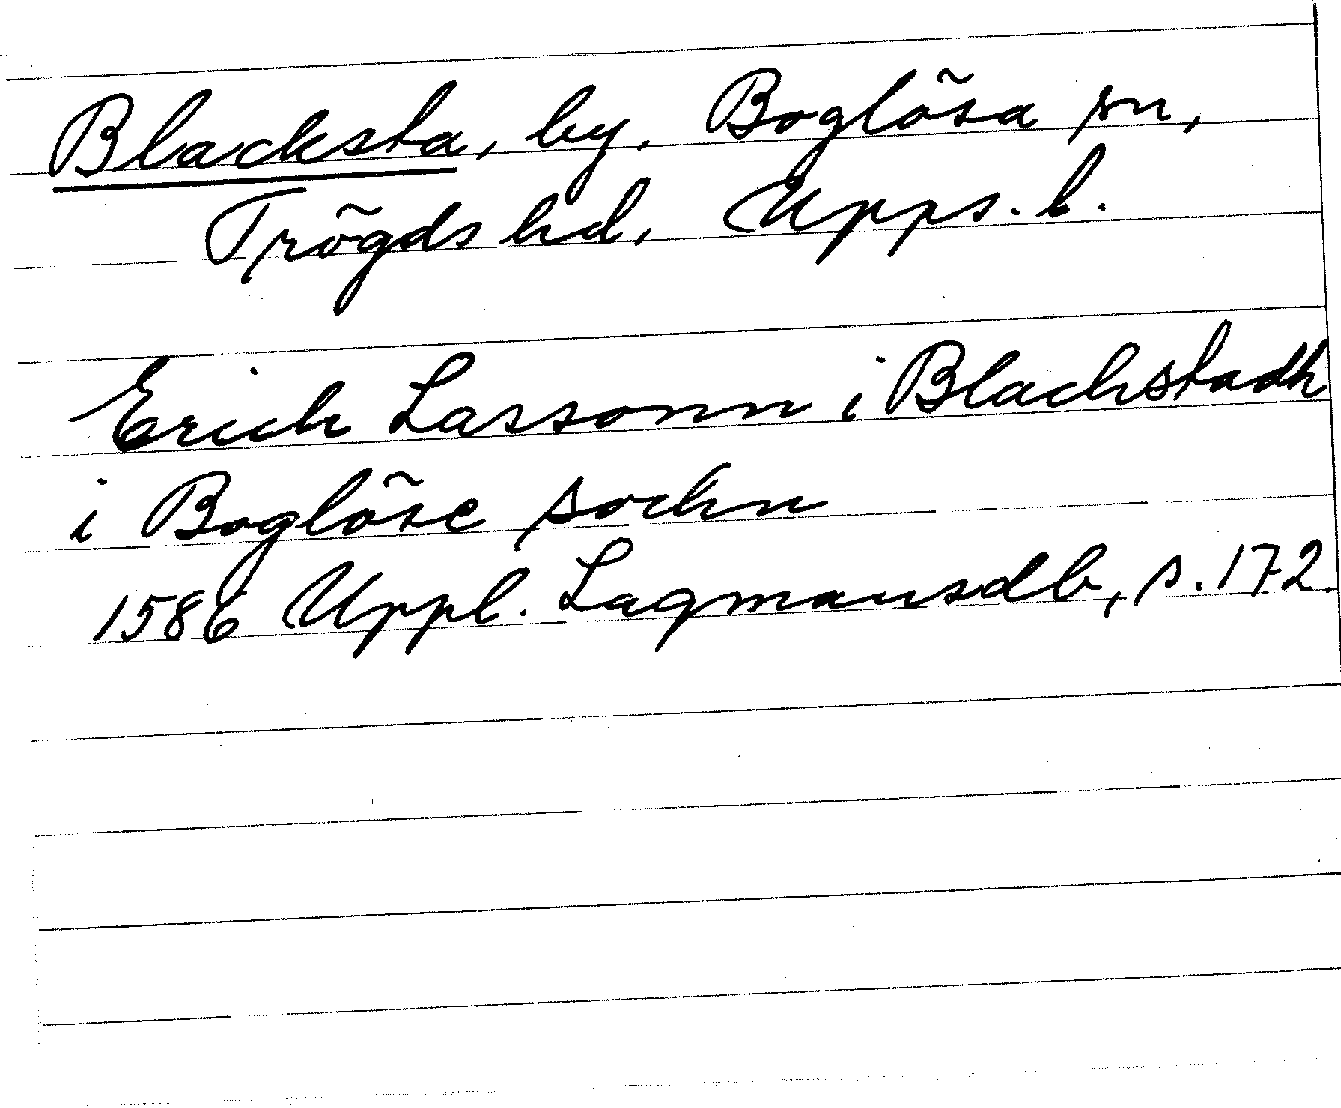 Blacksta, by, Boglösa sn,
Trögds hd, Upps. l.
Erich Larsonn i Blachstadh
i Boglöse sochn
1586 Uppl. Lagmansdb, s. 172.